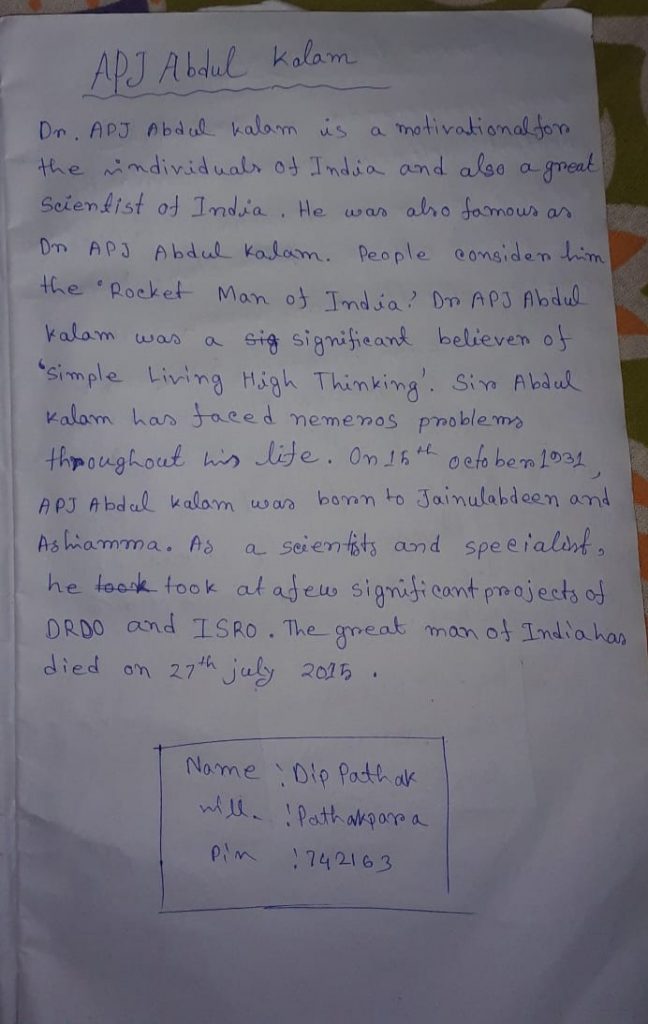 APJ Abdul Kalam
Dr. APJ Abdul Kalam is a motivational for
the individuals of India and also a great
Scientist of India. He was also famous as
Dr APJ Abdul Kalam. People consider him
the "Rocket Man of India." Dr APJ Abdul
Kalam was a sig significant believer of
'Simple Living High Thinking'. Sir Abdul
Kalam has faced nemeros problems
throughout his life. On 15th october 1931,
APJ Abdul Kalam was born to Jainulabdeen and
Ashiamma. As a scientists and specialist,
he took took at a few significant projects of
DRDO and ISRO. The great man of India has
died on 27th july 2015.
Name : Dip Pathak
vill. : Pathakpara
Pin : 742163